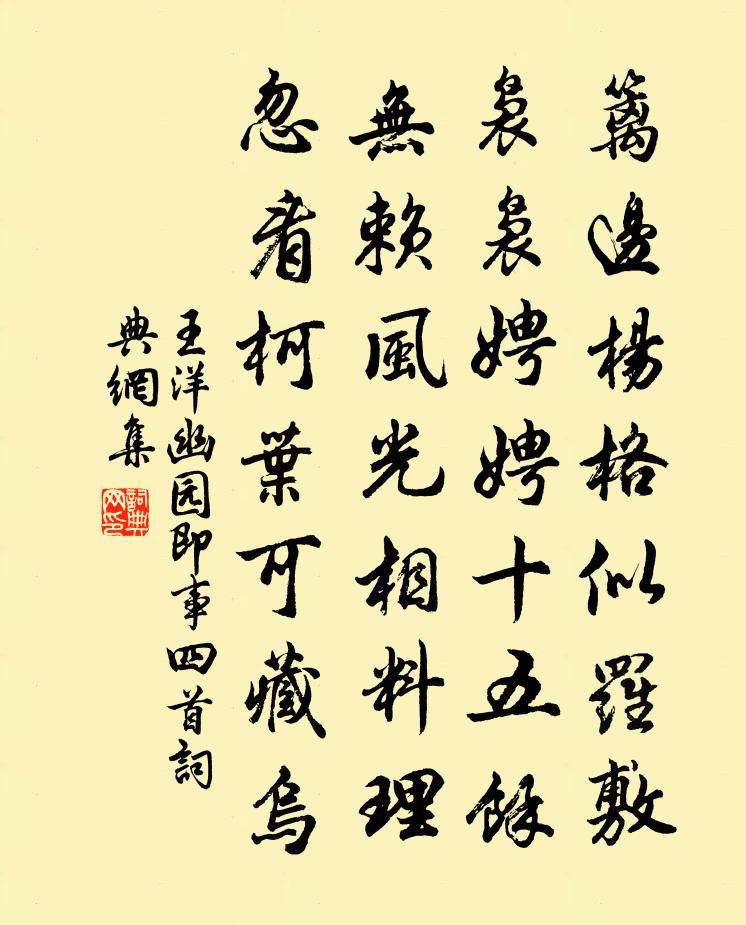 籬邊楊格似羅敷
裊裊娉娉十五餘
無賴風光相料理
忽看柯葉可藏烏
王洋幽园即事四首詞
典網集
詞典网印